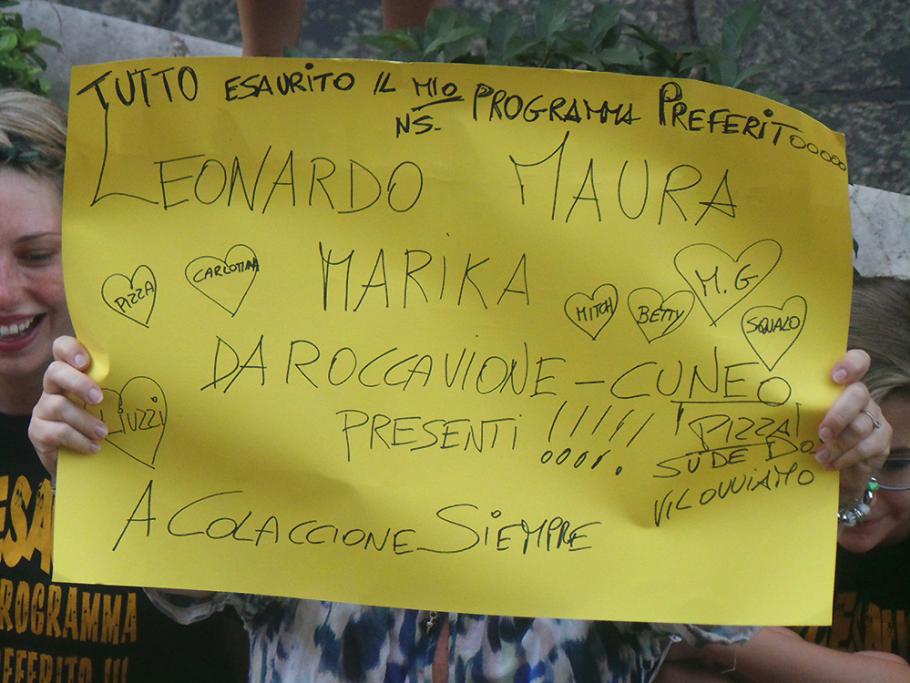 TUTTO ESAURITO IL MIO PROGRAMMA PREFERITOOOOOO
NS.
LEONARDO MAURA
MARIKA
PIZZA
CARLOTINA
MITCH
BETTY
M.G
SQUALO
DA ROCCAVIONE - CUNEO
LIUZZI
PRESENTI !!!!!
!PIZZA!
SUDE DO
VI LOVVIAMO
A COLACCIONE SIEMPRE
ESA
ROGRAMMA
EFERITO !!!